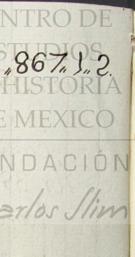 NTRO DE
STUDIOS
HISTORIA
E MEXICO
NDACIÓN
arlos Slim